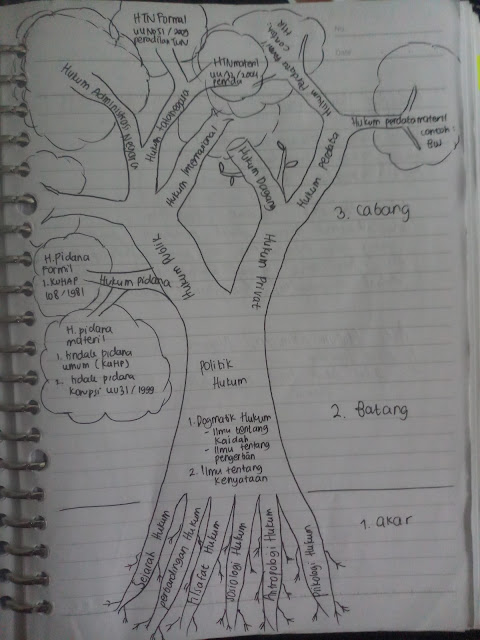 HTN Formal
UU No 51/2009
peradilan TUN
HTN materil
UU
pemilu
contoh:
HIR
Hukum Administrasi Negara
Hukum tatanegara
Hukum Internasional
Hukum Dagang
Hukum Perdata
Hukum perdata materil
contoh:
BW
3. Cabang
Hukum Publik
Hukum Privat
H. Pidana
Formil
1. KUHAP
108/1981
Hukum Pidana
H. pidana
materil
1. tindak pidana
umum (KUHP)
2. tindak pidana
korupsi UU 31/1999
politik
Hukum
2. Batang
1. Dogmatik Hukum
- Ilmu tentang
kaidah
- Ilmu tentang
pengertian
2. Ilmu tentang
kenyataan
1. akar
Sejarah Hukum
perbandingan Hukum
Filsafat Hukum
Sosiologi Hukum
Antropologi Hukum
Psikologi Hukum